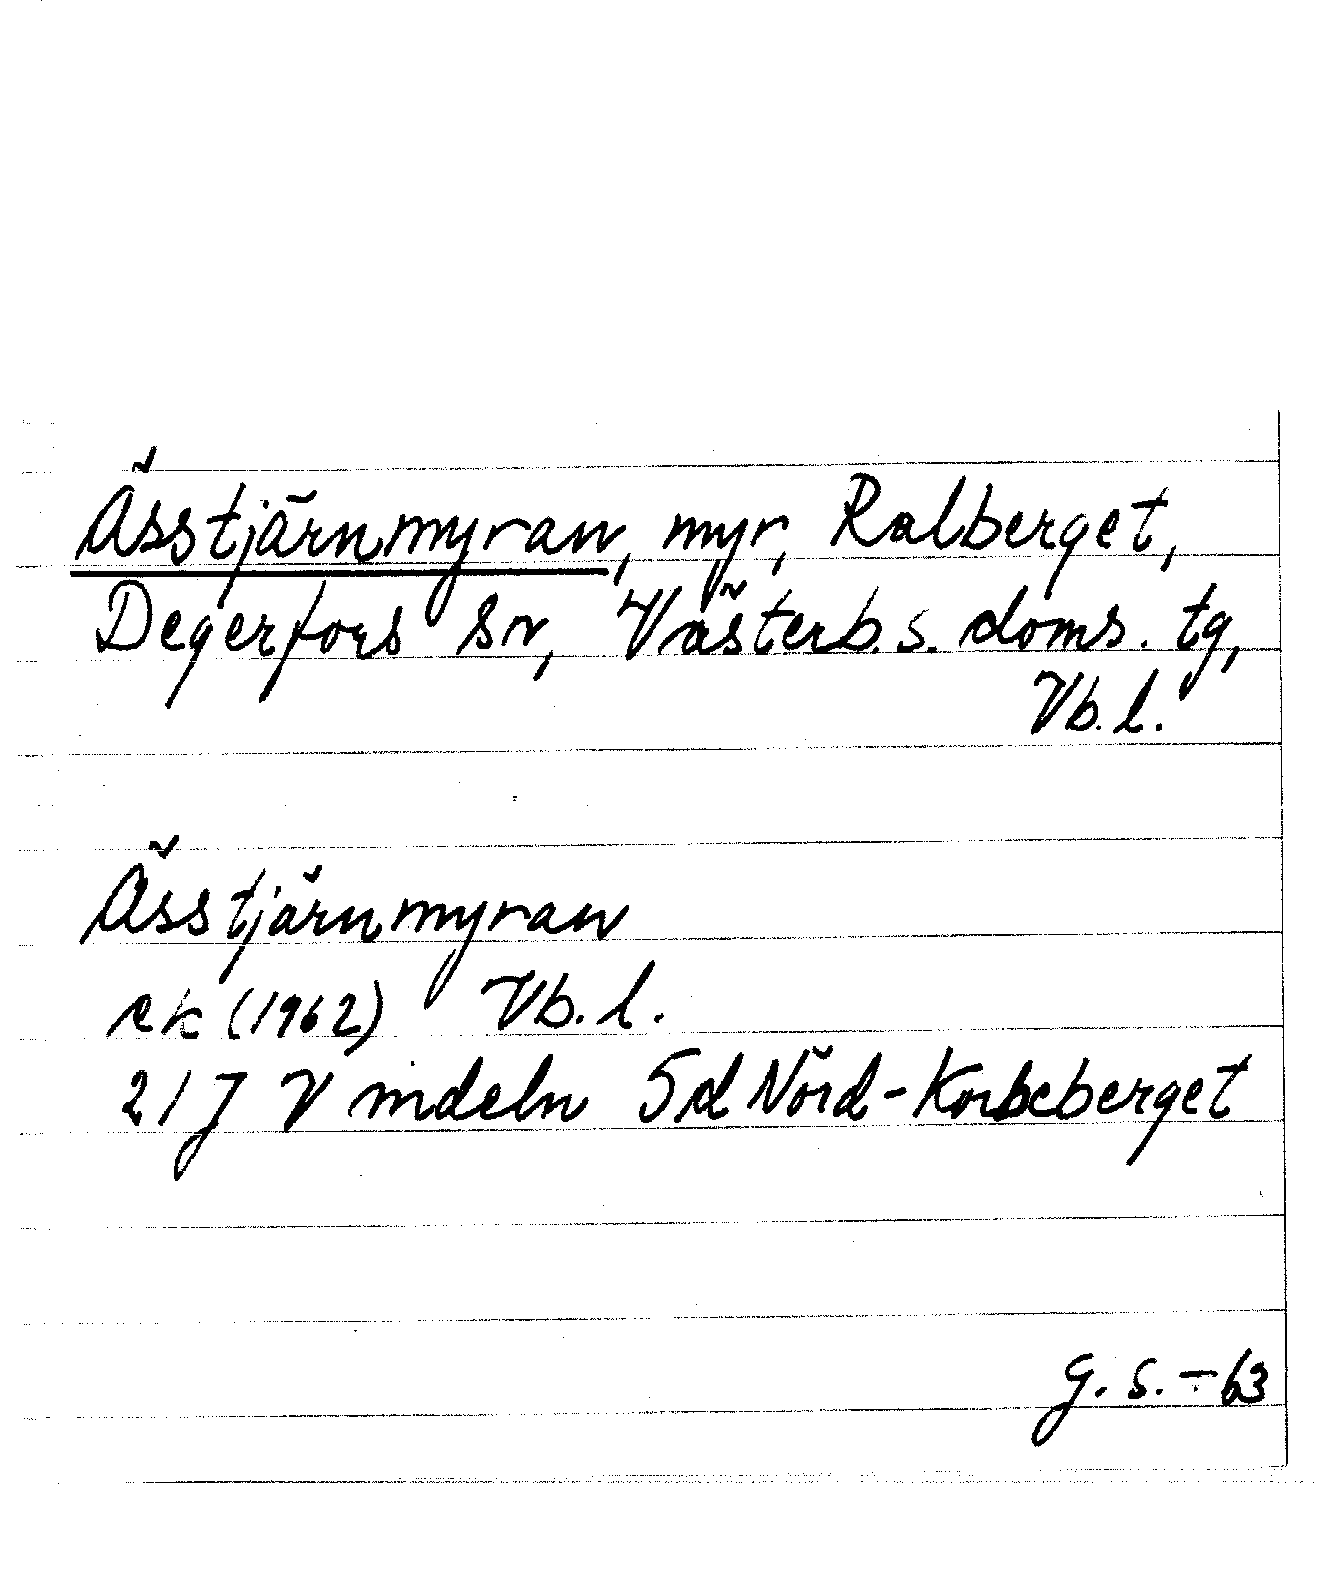 Ässtjärnmyran, myr, Ralberget,
Degerfors sn, Västerb. s. doms. tg,
Vb. l.
Ässtjärnmyran
ek (1962) Vb. l.
21J Vindeln 5d Nörd-Korbeberget
G. S. - 63